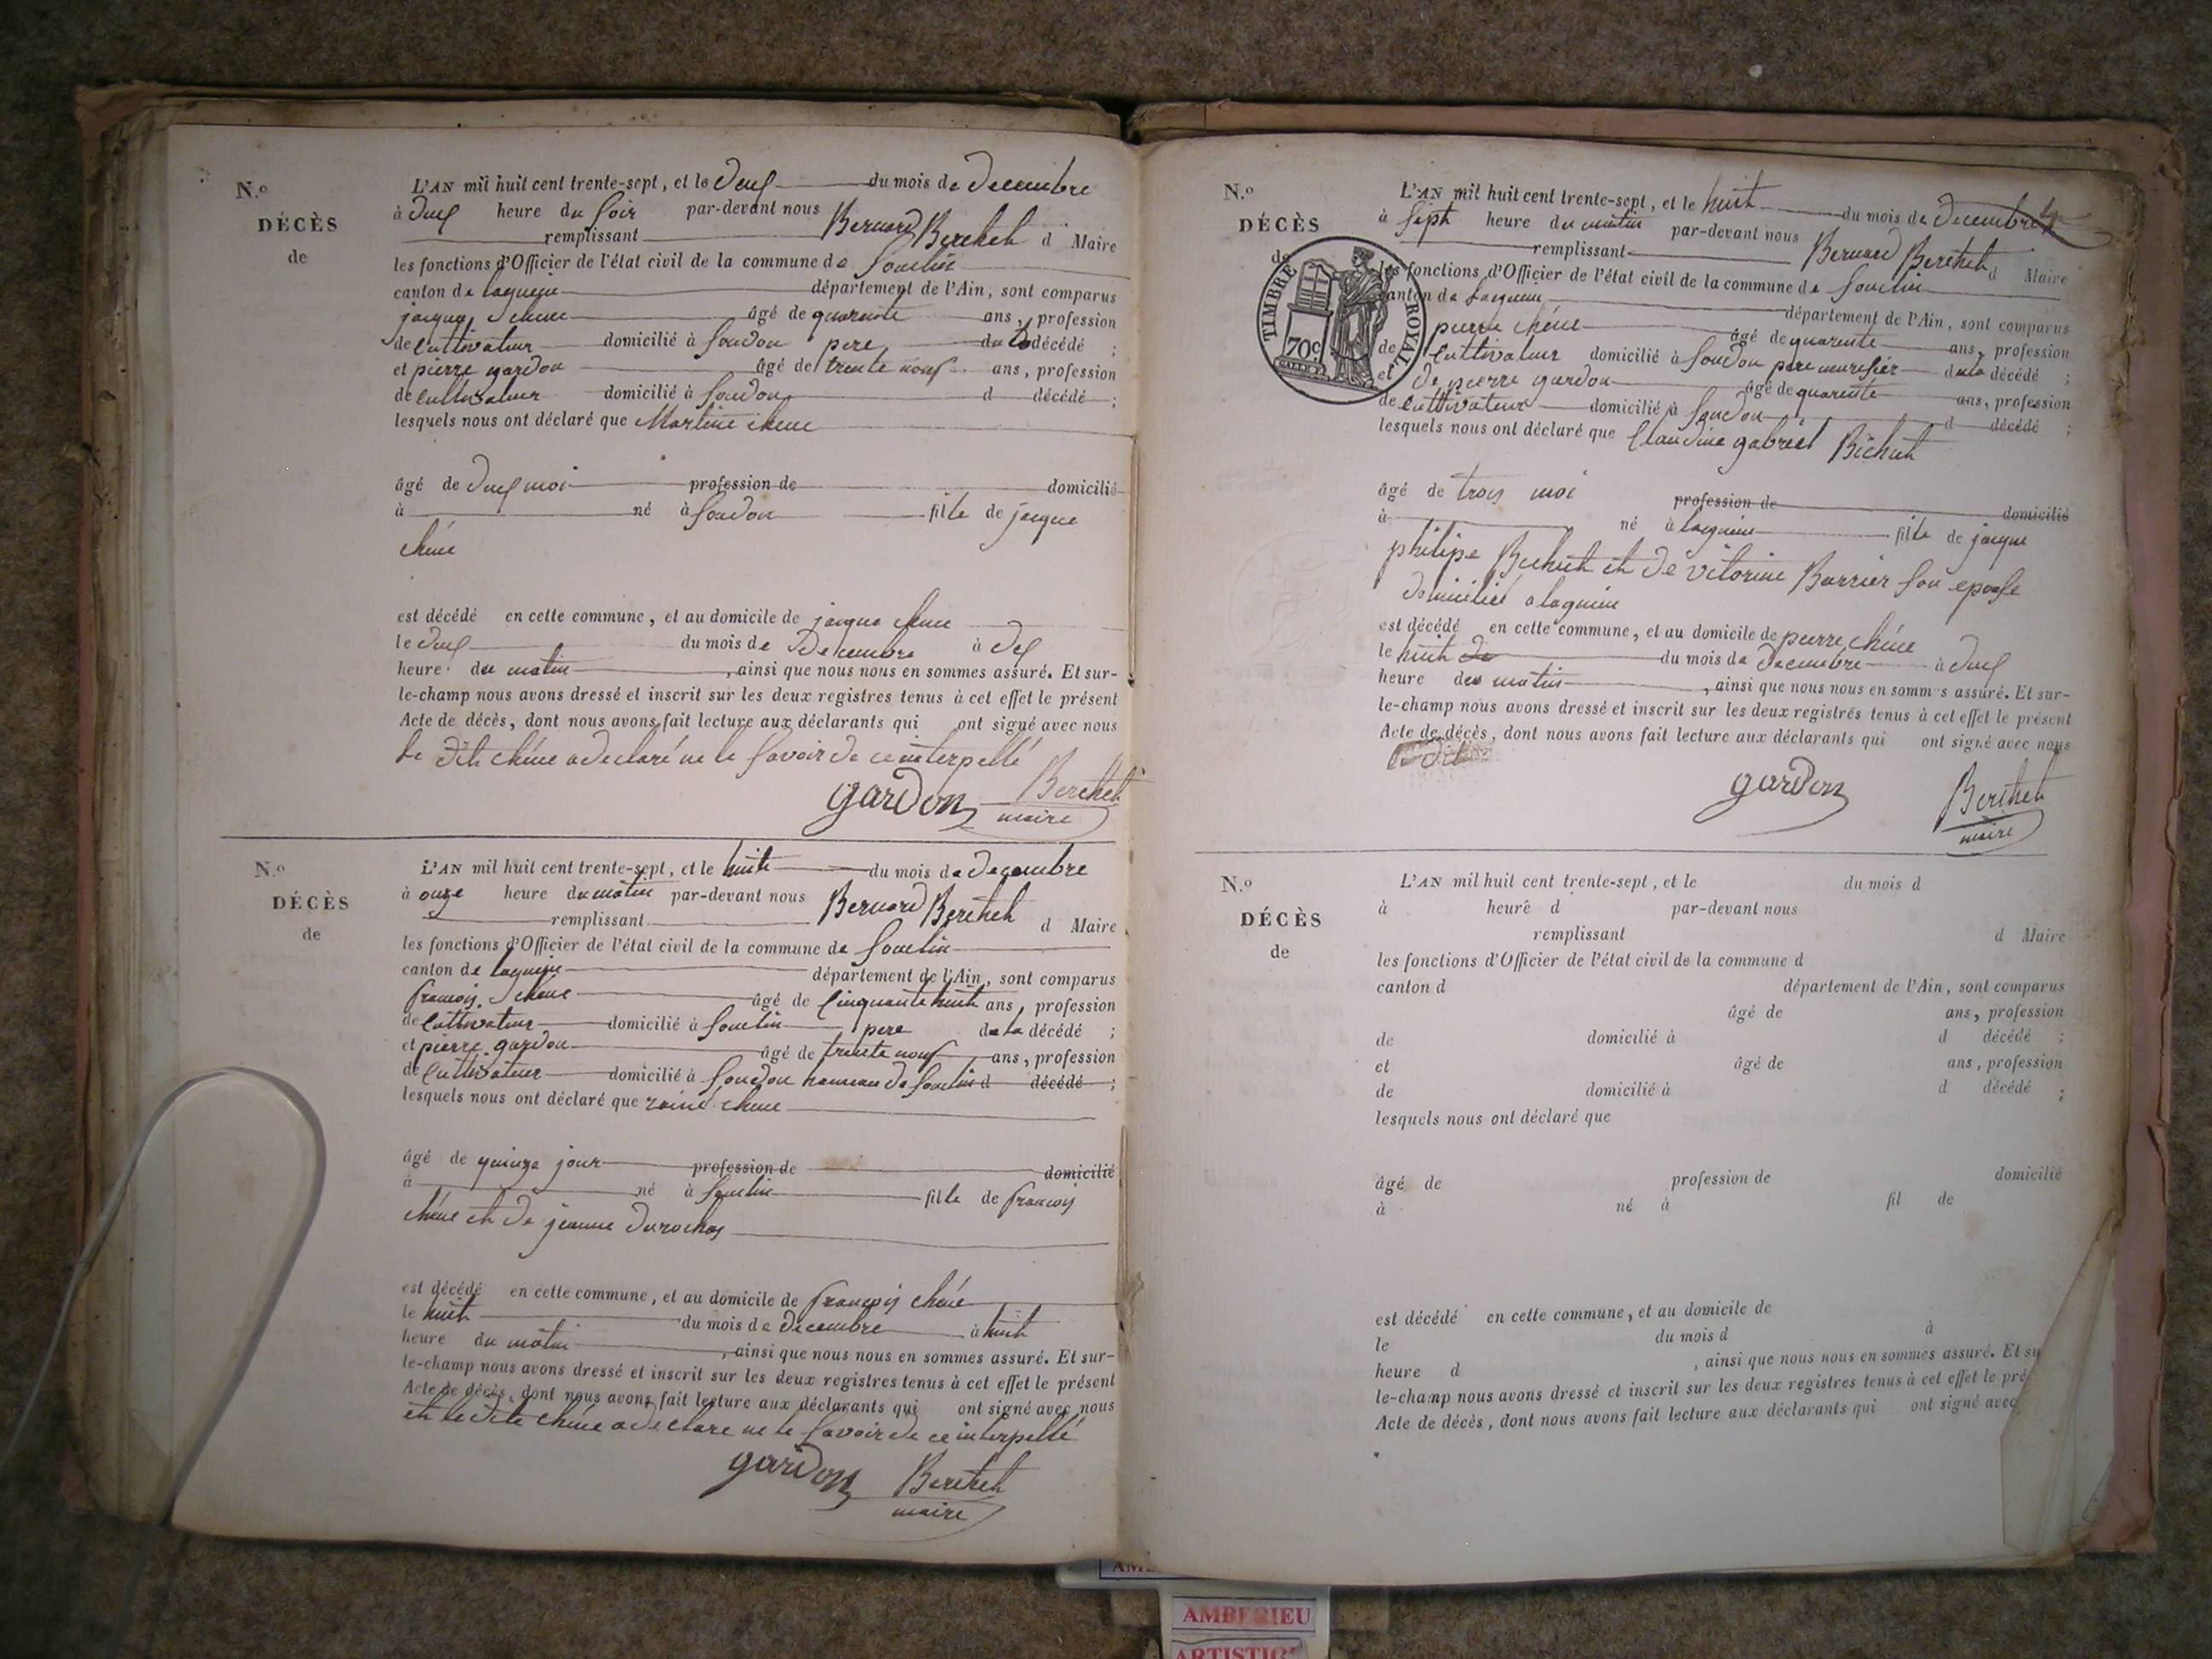 N.o
DÉCÈS
de
L'AN mil huit cent trente-sept, et le deux du mois de decembre
à deux heure du soir par-devant nous Bernard Berthet d Maire
remplissant
les fonctions d'Officier de l'état civil de la commune de Souclin
canton de lagnieu département de l'Ain, sont comparus
jacques chene âgé de quarente ans, profession
de Cultivateur domicilié à Soudon pere de la décédé ;
et pierre gardon âgé de trente nouf ans, profession
de Cultivateur domicilié à Soudon d décédé ;
lesquels nous ont déclaré que Martine chene
âgé de deux moi profession de domicilié
à né à Soudon fille de jacque
chéne
est décédé en cette commune, et au domicile de jacque chene
le deux du mois de Decembre à
heure du matin, ainsi que nous nous en sommes assuré. Et sur-
le-champ nous avons dressé et inscrit sur les deux registres tenus à cet effet le présent
Acte de décès, dont nous avons fait lecture aux déclarants qui ont signé avec nous
le dit chéne a declaré ne le Savoir de ce interpellé
gardon Berthet
maire
N.o
DÉCÈS
de
L'AN mil huit cent trente-sept, et le huit du mois de decembre
à onze heure du matin par-devant nous Bernard Berthet d Maire
remplissant
les fonctions d'Officier de l'état civil de la commune de Souclin
canton de lagnieu département de l'Ain, sont comparus
francois chene âgé de Cinquante huit ans, profession
de Cultivateur domicilié à Souclin pere de la décédé ;
et pierre gardon âgé de trente nouf ans, profession
de Cultivateur domicilié à Soudon hameau de Souclin d décédé ;
lesquels nous ont déclaré que chene
âgé de quinze jour profession de domicilié
à né à Souclin fille de francois
chéne et de jeanne durochas
est décédé en cette commune, et au domicile de francois chéne
le huit du mois de decembre à huit
heure du matin, ainsi que nous nous en sommes assuré. Et sur-
le-champ nous avons dressé et inscrit sur les deux registres tenus à cet effet le présent
Acte de décès, dont nous avons fait lecture aux déclarants qui ont signé avec nous
et le dit chéne a declare ne le Savoir de ce interpellé
gardon Berthet
maire
N.o
DÉCÈS
de
TIMBRE ROYAL
70c
L'AN mil huit cent trente-sept, et le huit du mois de decembre
à Sept heure du matin par-devant nous Bernard Berthet d Maire
remplissant
les fonctions d'Officier de l'état civil de la commune de Souclin
canton de Lagnieu département de l'Ain, sont comparus
pierre chéne âgé de quarente ans, profession
de Cultivateur domicilié à Soudon pere nourisier de la décédé ;
et De pierre gardon âgé de quarente ans, profession
de Cultivateur domicilié à Soudon d décédé ;
lesquels nous ont déclaré que Claudine gabriel Bichut
âgé de trois moi profession de domicilié
à né à lagnieu fille de jacque
philipe Bichut et de vitorine Barrier Son epouse
domicilié a lagnieu
est décédé en cette commune, et au domicile de pierre chéne
le huit du mois de decembre à deux
heure du matin, ainsi que nous nous en sommes assuré. Et sur-
le-champ nous avons dressé et inscrit sur les deux registrés tenus à cet effet le présent
Acte de décès, dont nous avons fait lecture aux déclarants qui ont signé avec nous
gardon Berthet
maire
N.o
DÉCÈS
de
L'AN mil huit cent trente-sept, et le du mois d
à heure d par-devant nous
remplissant d Maire
les fonctions d'Officier de l'état civil de la commune d
canton d département de l'Ain, sont comparus
âgé de ans, profession
de domicilié à d décédé ;
et âgé de ans, profession
de domicilié à d décédé ;
lesquels nous ont déclaré que
âgé de profession de domicilié
à né à fil de
est décédé en cette commune, et au domicile de
le du mois d à
heure d , ainsi que nous nous en sommes assuré. Et su
le-champ nous avons dressé et inscrit sur les deux registres tenus à cet effet le pré
Acte de décès, dont nous avons fait lecture aux déclarants qui ont signé avec
AMBERIEU
ARTISTIQ